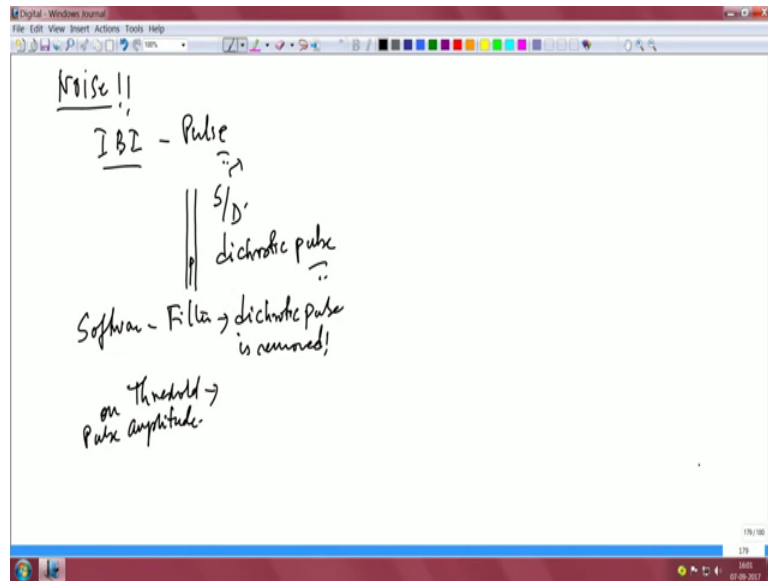 Digital - Windows Journal
File Edit View Insert Actions Tools Help
100%
Noise!!
IBI - Pulse
S/D
dichrotic pulse
Software - Filter → dichrotic pulse
is removed!
Threshold →
on
Pulse amplitude.
179/180
179
16:01
07-09-2017